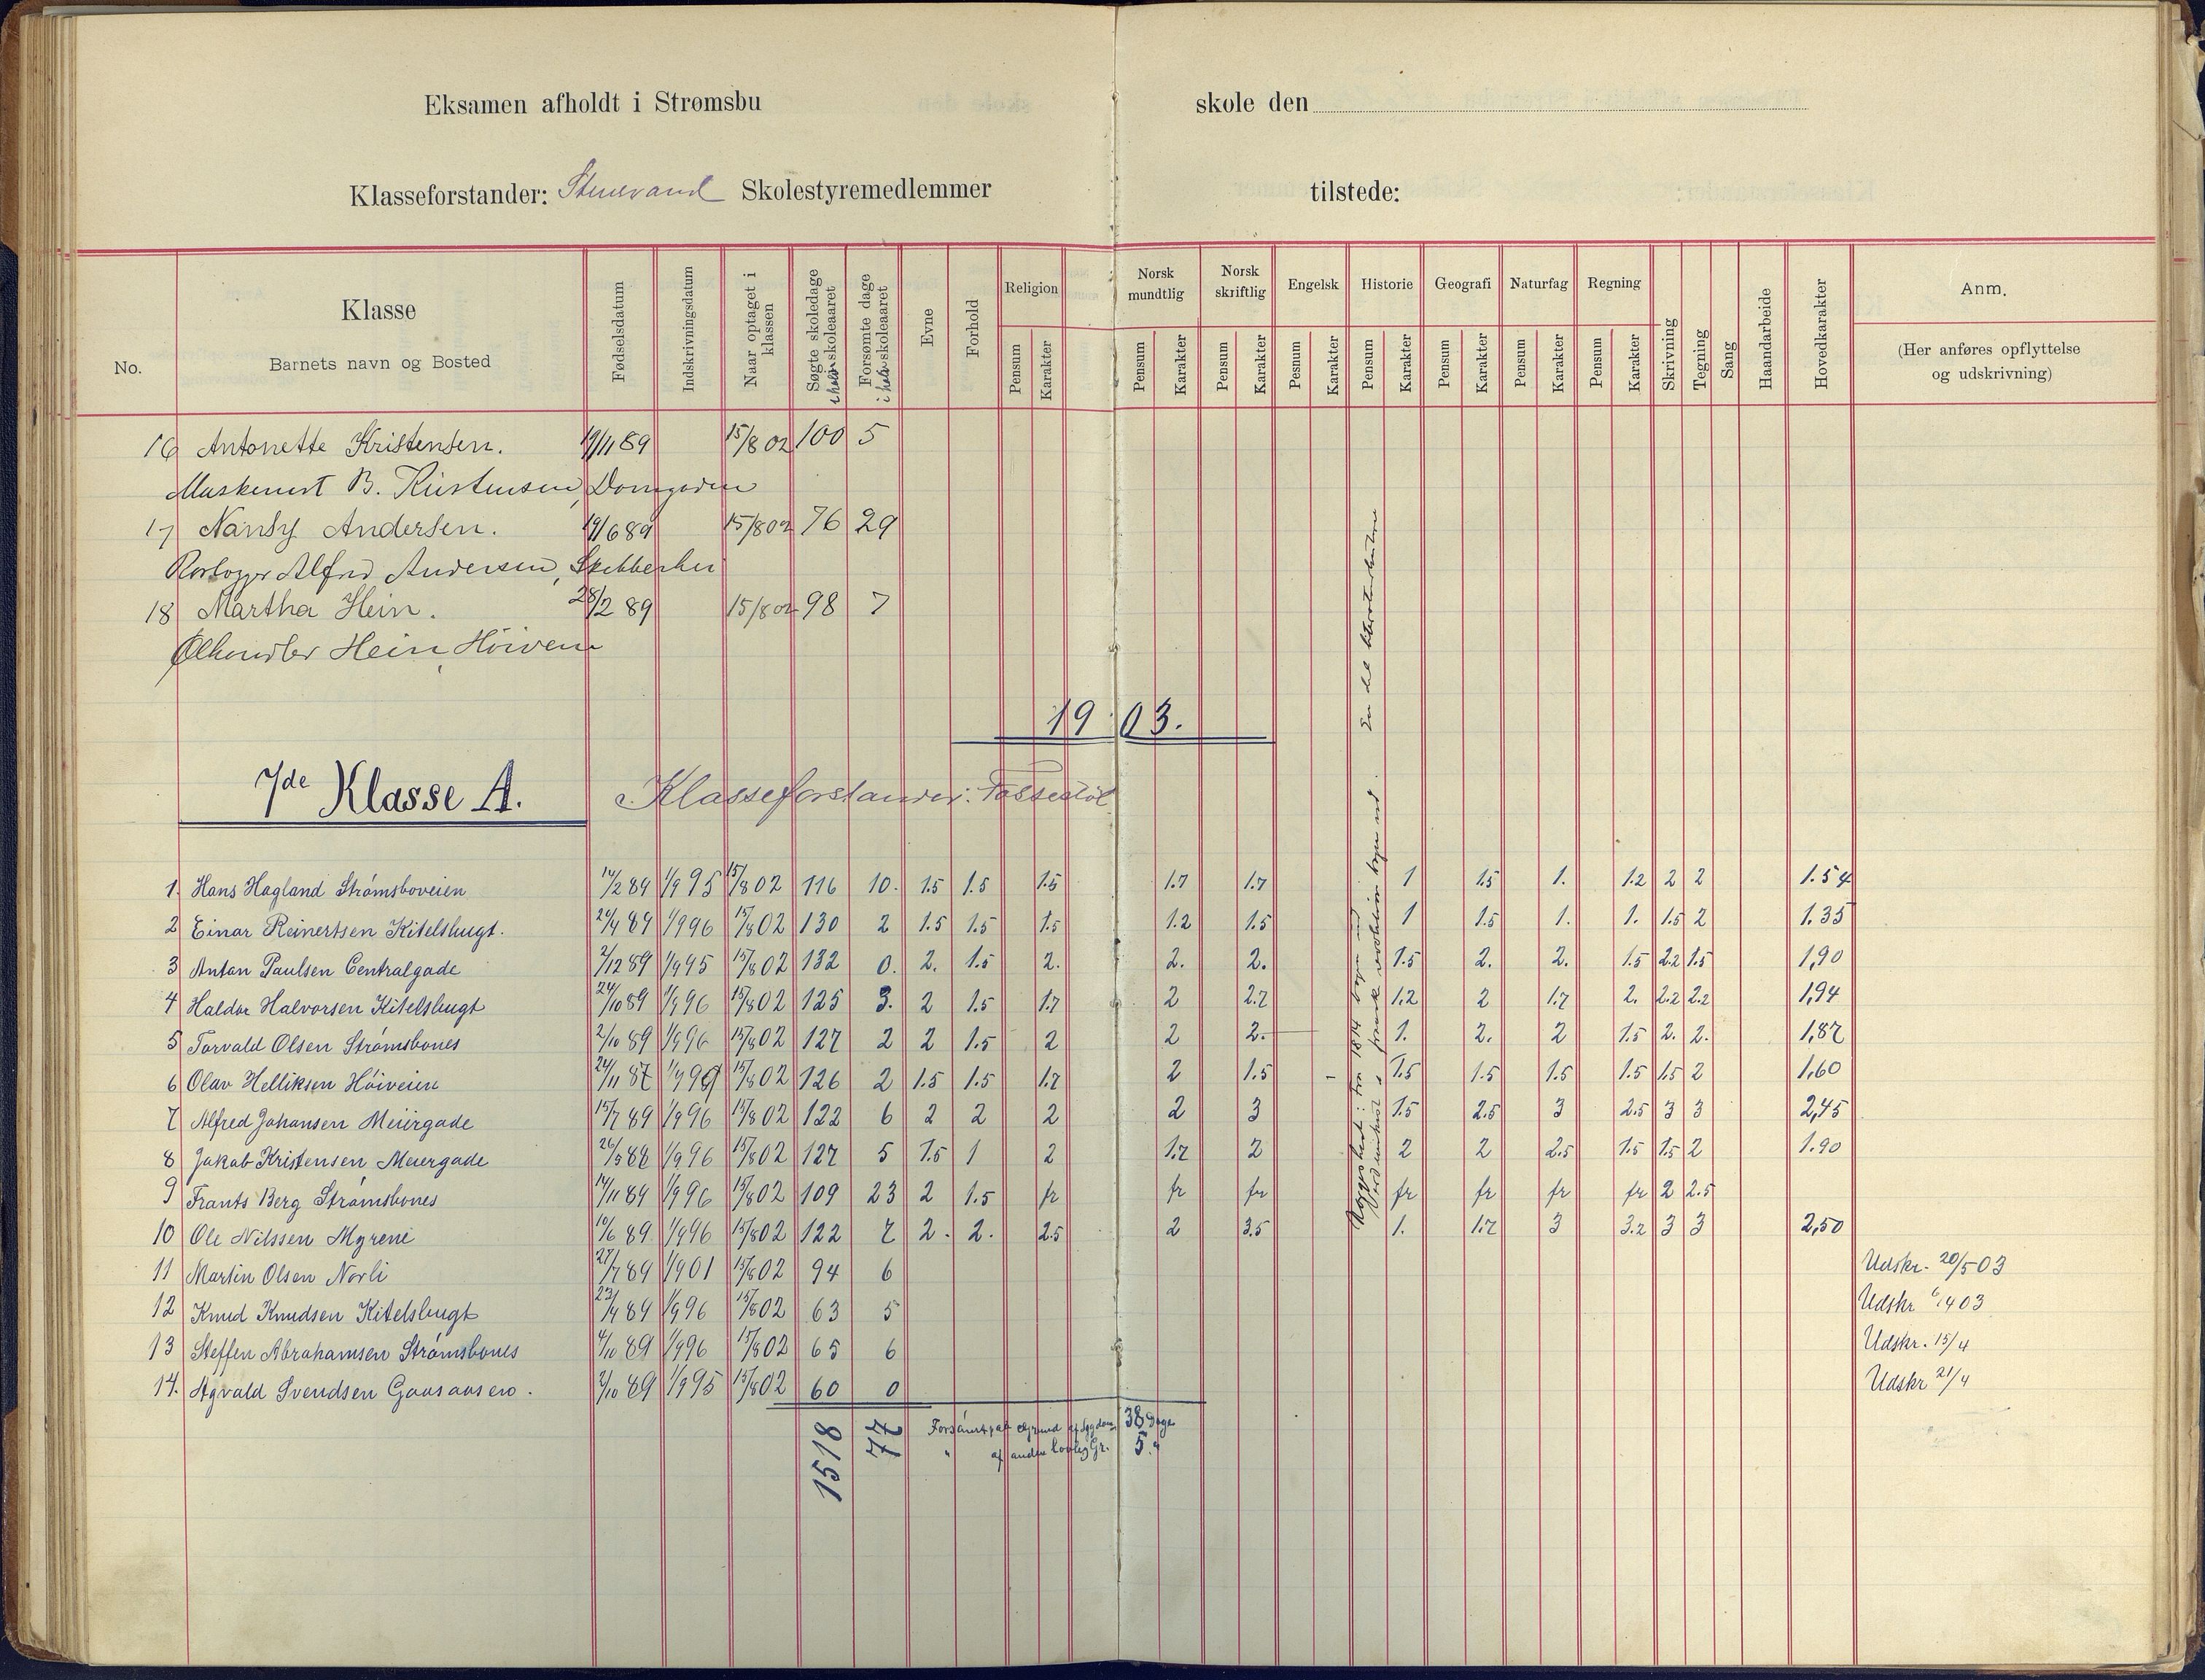 Eksamen afholdt i Strømsbu skole den
Klasseforstander: Skolestyremedlemmer tilstede:
No. Klasse Barnets navn og Bosted Fødselsdatum Indskrivningsdatum Naar optaget i klassen Søgte skoledage i hele skoleaaret Forsømte dage i hele skoleaaret Evne Forhold Religion Pensum Karakter Norsk mundtlig Pensum Karakter Norsk skriftlig Pensum Karakter Engelsk Pesnum Karakter Historie Pensum Karakter Geografi Pensum Karakter Naturfag Pensum Karakter Regning Pensum Karakter Skrivning Tegning Sang Haandarbeide Hovedkarakter Anm. (Her anføres opflyttelse og udskrivning)
16 Antonette Kristensen. 19/11 89 15/8 02 100 5
B. Kristensen,
17 Nansy Andersen. 19/6 89 15/8 02 76 29
Alfred Andersen,
18 Martha Hein. 28/2 89 15/8 02 98 7
Ølhandler Hein Høiveien
1903.
7de Klasse A. Klasseforstander:
1. Hans Hagland Strømsboveien 14/2 89 1/9 95 15/8 02 116 10. 1.5 1.5 1.5 1.7 1.7 1 1.5 1. 1.2 2 2 1.54
2 Einar Reinertsen Kitelsbugt. 24/4 89 1/9 96 15/8 02 130 2 1.5 1.5 1.5 1.2 1.5 1 1.5 1. 1. 1.5 2 1.35
3 Anton Paulsen Centralgade 2/12 89 1/9 95 15/8 02 132 0. 2. 1.5 2. 2. 2. 1.5 2. 2. 1.5 2.2 1.5 1,90
4 Haldor Halvorsen Kitelsbugt 24/10 89 1/9 96 15/8 02 125 3. 2 1.5 1.7 2 2.7 1.2 2 1.7 2. 2.2 2.2 1,94
5 Torvald Olsen Strømsbones 2/10 89 1/9 96 15/8 02 127 2 2 1.5 2 2 2. 1. 2. 2 1.5 2. 2. 1,87
6 Olav Helliksen Høiveien 24/11 87 1/9 99 15/8 02 126 2 1.5 1.5 1.7 2 1.5 1.5 1.5 1.5 1.5 1.5 2 1,60
7 Alfred Johansen Meiergade 15/7 89 1/9 96 15/8 02 122 6 2 2 2 2 3 1.5 2.5 3 2.5 3 3 2,45
8 Jakob Kristensen Meiergade 26/5 88 1/9 96 15/8 02 127 5 1.5 1 2 1.7 2 2 2 2.5 1.5 1.5 2 1.90
9 Frants Berg Strømsbones 14/11 89 1/9 96 15/8 02 109 23 2 1.5 fr fr fr fr fr fr fr 2 2.5
10 Ole Nilssen Myrene 10/6 89 1/9 96 15/8 02 122 7 2. 2. 2.5 2 3.5 1. 1.7 3 3.2 3 3 2,50
11 Martin Olsen Norli 27/7 89 1/9 01 15/8 02 94 6 Udskr. 20/5 03
12 Knud Knudsen Kitelsbugt 23/4 89 1/9 96 15/8 02 63 5 Udskr 6/4 03
13 Steffen Abrahamsen Strømsbones 4/10 89 1/9 96 15/8 02 65 6 Udskr. 15/4
14. Agvald Svendsen Gaasaasen. 2/10 89 1/9 95 15/8 02 60 0 Udskr 21/4
1518 77 Forsømt paa Grund af Sygdom 38 Dage
" af anden lovlig Gr. 5 "